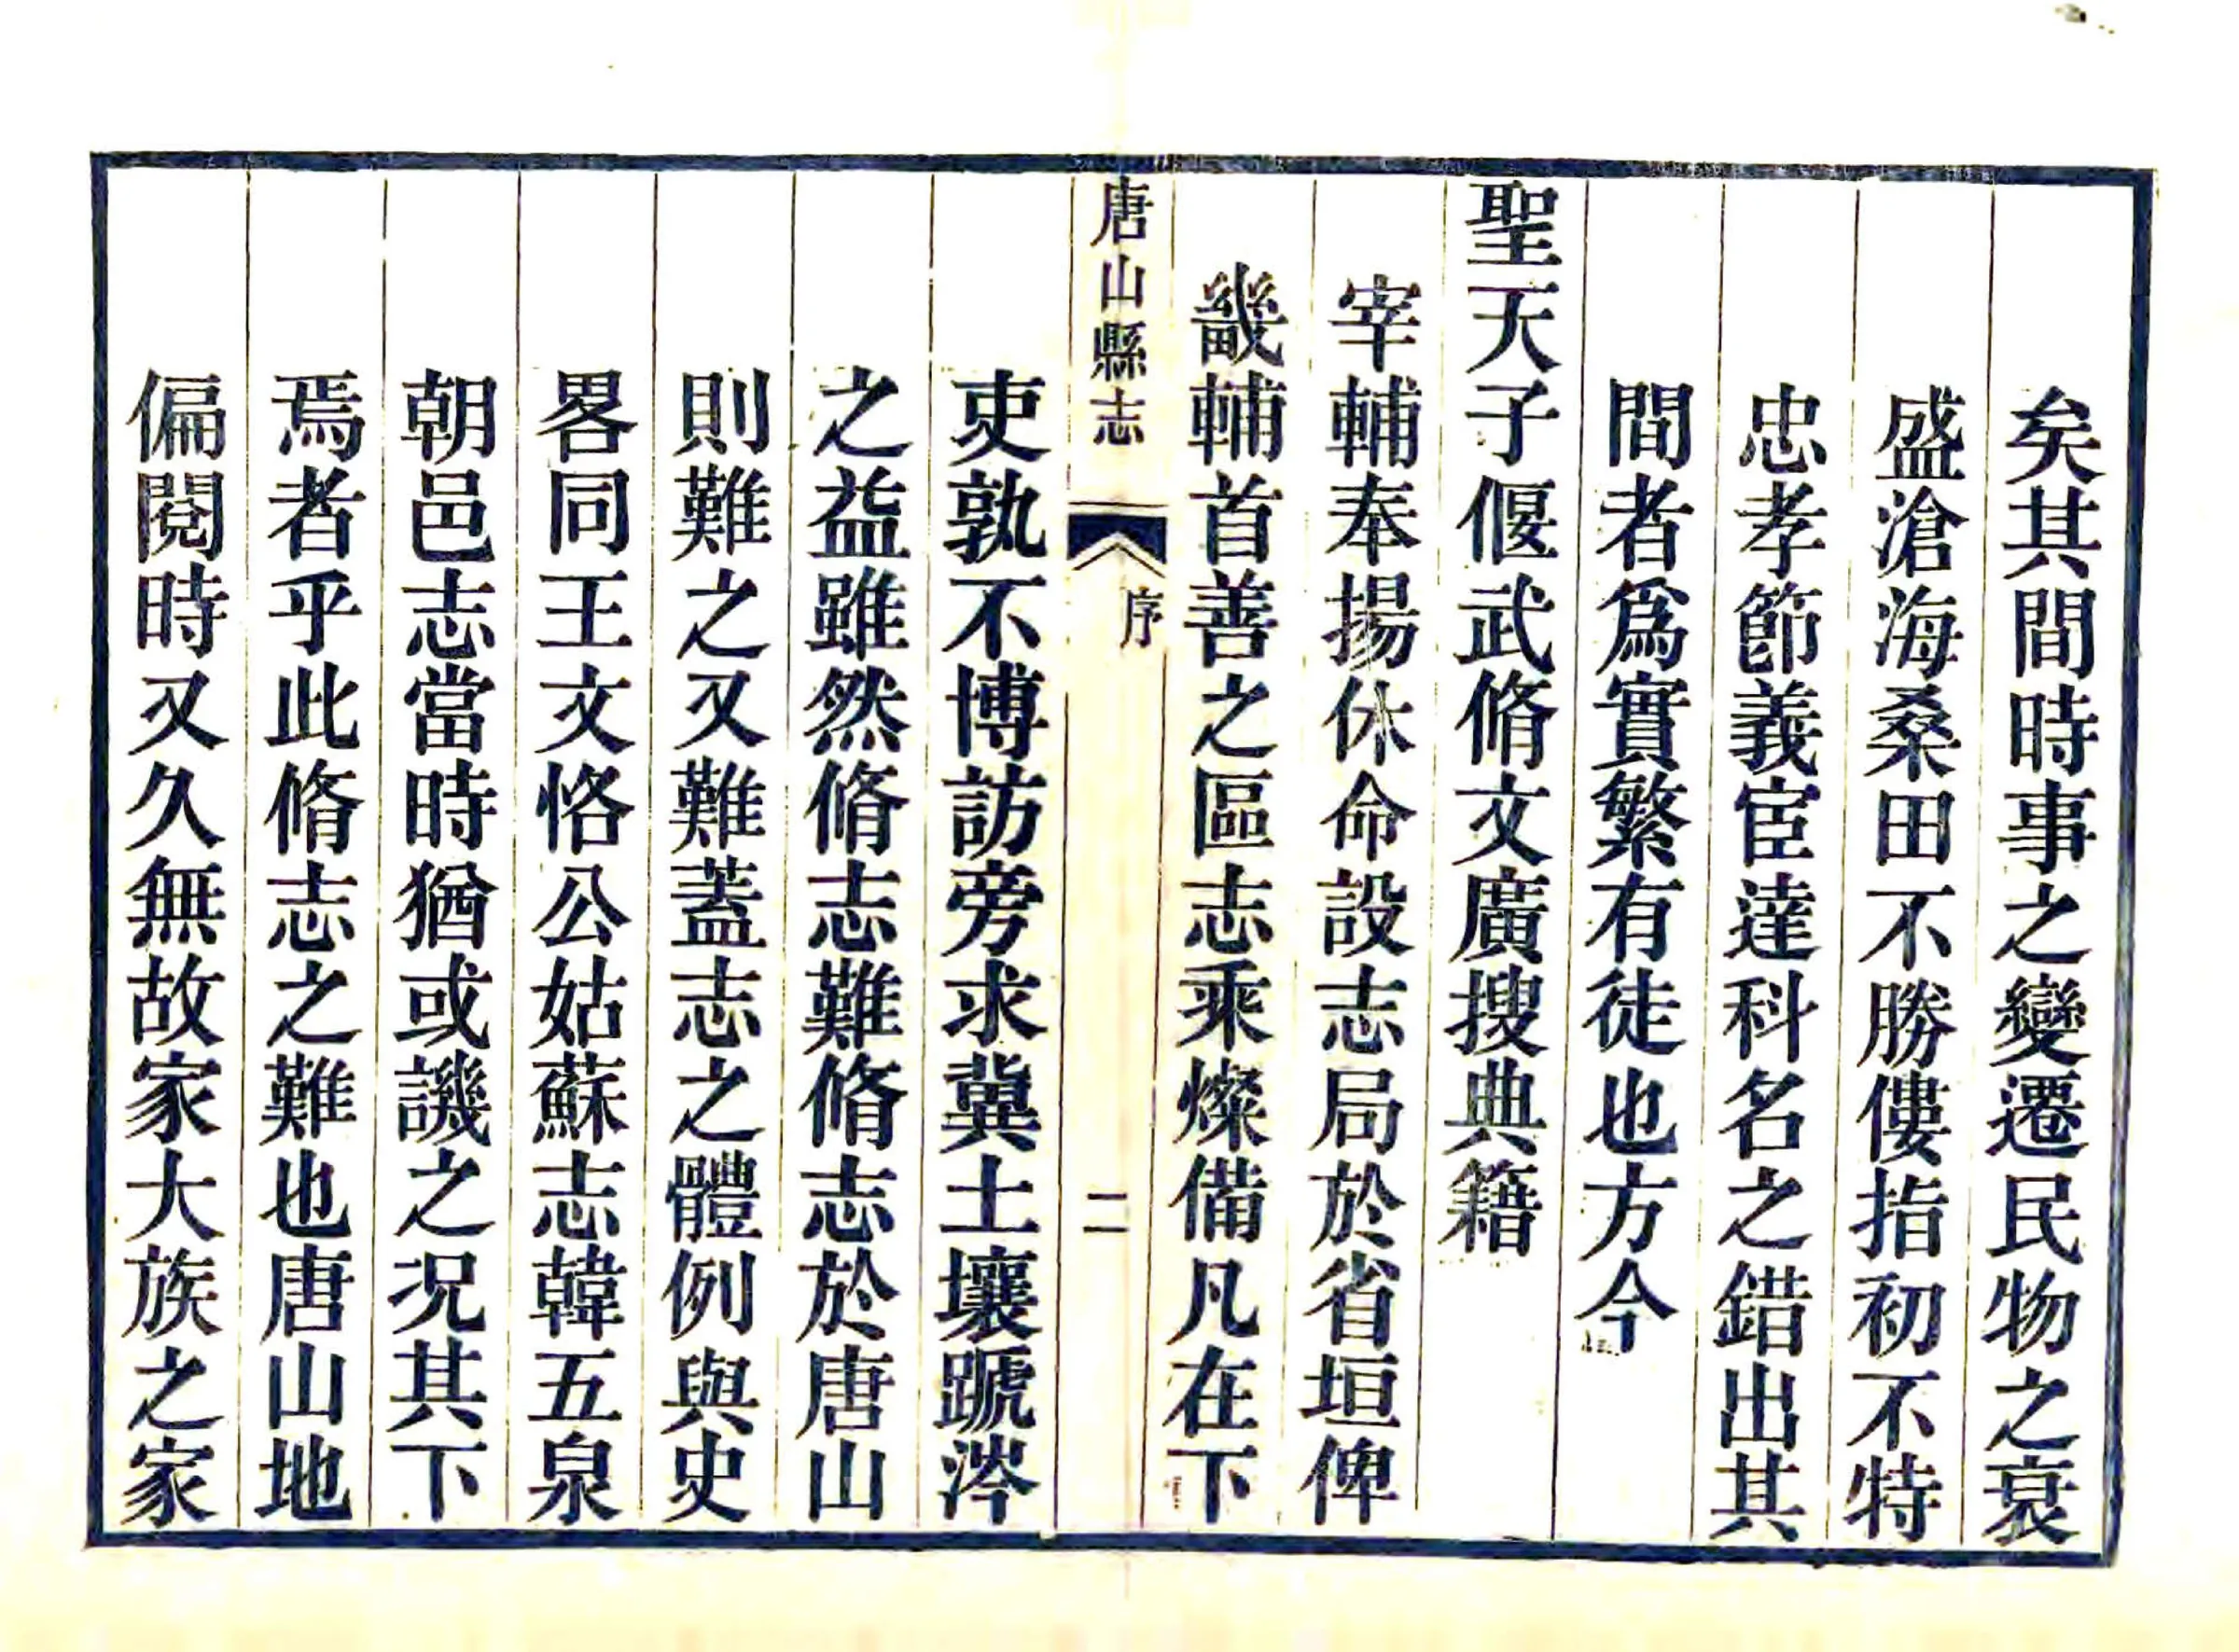 矣其間時事之變遷民物之衰
盛滄海桑田不勝僂指初不特
忠孝節義宦達科名之錯出其
間者爲實繁有徒也方今
聖天子偃武脩文廣搜典籍
宰輔奉揚休命設志局於省垣俾
畿輔首善之區志乘燦備凡在下
唐山縣志
序
二
吏孰不博訪旁求冀土壤蹏涔
之益雖然脩志難脩志於唐山
則難之又難蓋志之體例與史
畧同王文恪公姑蘇志韓五泉
朝邑志當時猶或譏之况其下
焉者乎此脩志之難也唐山地
偏閱時又久無故家大族之家